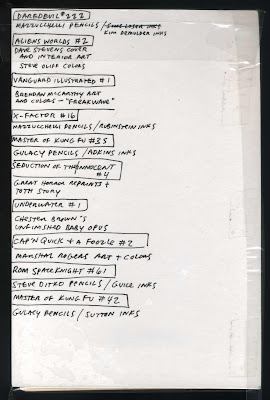 DAREDEVIL #222
MAZZUCCHELLI PENCILS /
KIM DEMULDER INKS
ALIENS WORLDS #2
DAVE STEVENS COVER
AND INTERIOR ART
STEVE OLIFF COLORS
VANGUARD ILLUSTRATED #1
BRENDAN MCCARTHY ART
AND COLORS - "FREAKWAVE"
X-FACTOR #16
MAZZUCCHELLI PENCILS / RUBINSTEIN INKS
MASTER OF KUNG FU #35
GULACY PENCILS / ADKINS INKS
SEDUCTION OF THE INNOCENT
#4
GREAT HORROR REPRINTS +
TOTH STORY
UNDERWATER #1
CHESTER BROWN'S
UNFINISHED BABY OPUS
CAP'N QUICK + A FOOZLE #2
MARSHAL ROGERS ART + COLORS
ROM SPACEKNIGHT #61
STEVE DITKO PENCILS / GUICE INKS
MASTER OF KUNG FU #42
GULACY PENCILS / SUTTON INKS